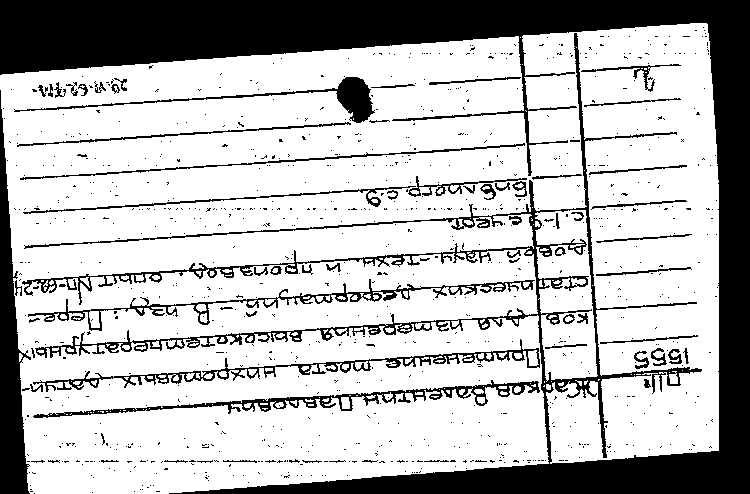 П11
1555
Жарков, Валентин Павлович
Применение моста нихромовых датчи-
ков для измерения высокотемпературных
статических деформаций. – В изд.: Пере-
довой научн.-техн. и производ. опыт №П-62-24
с. 1-9 с черт.
Библиогр. с. 9.